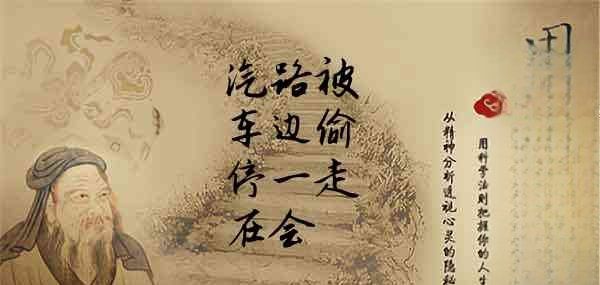 汽车停在
路边一会
被偷走
用科学法则把握你的人生
从精神分析透视心灵的隐秘